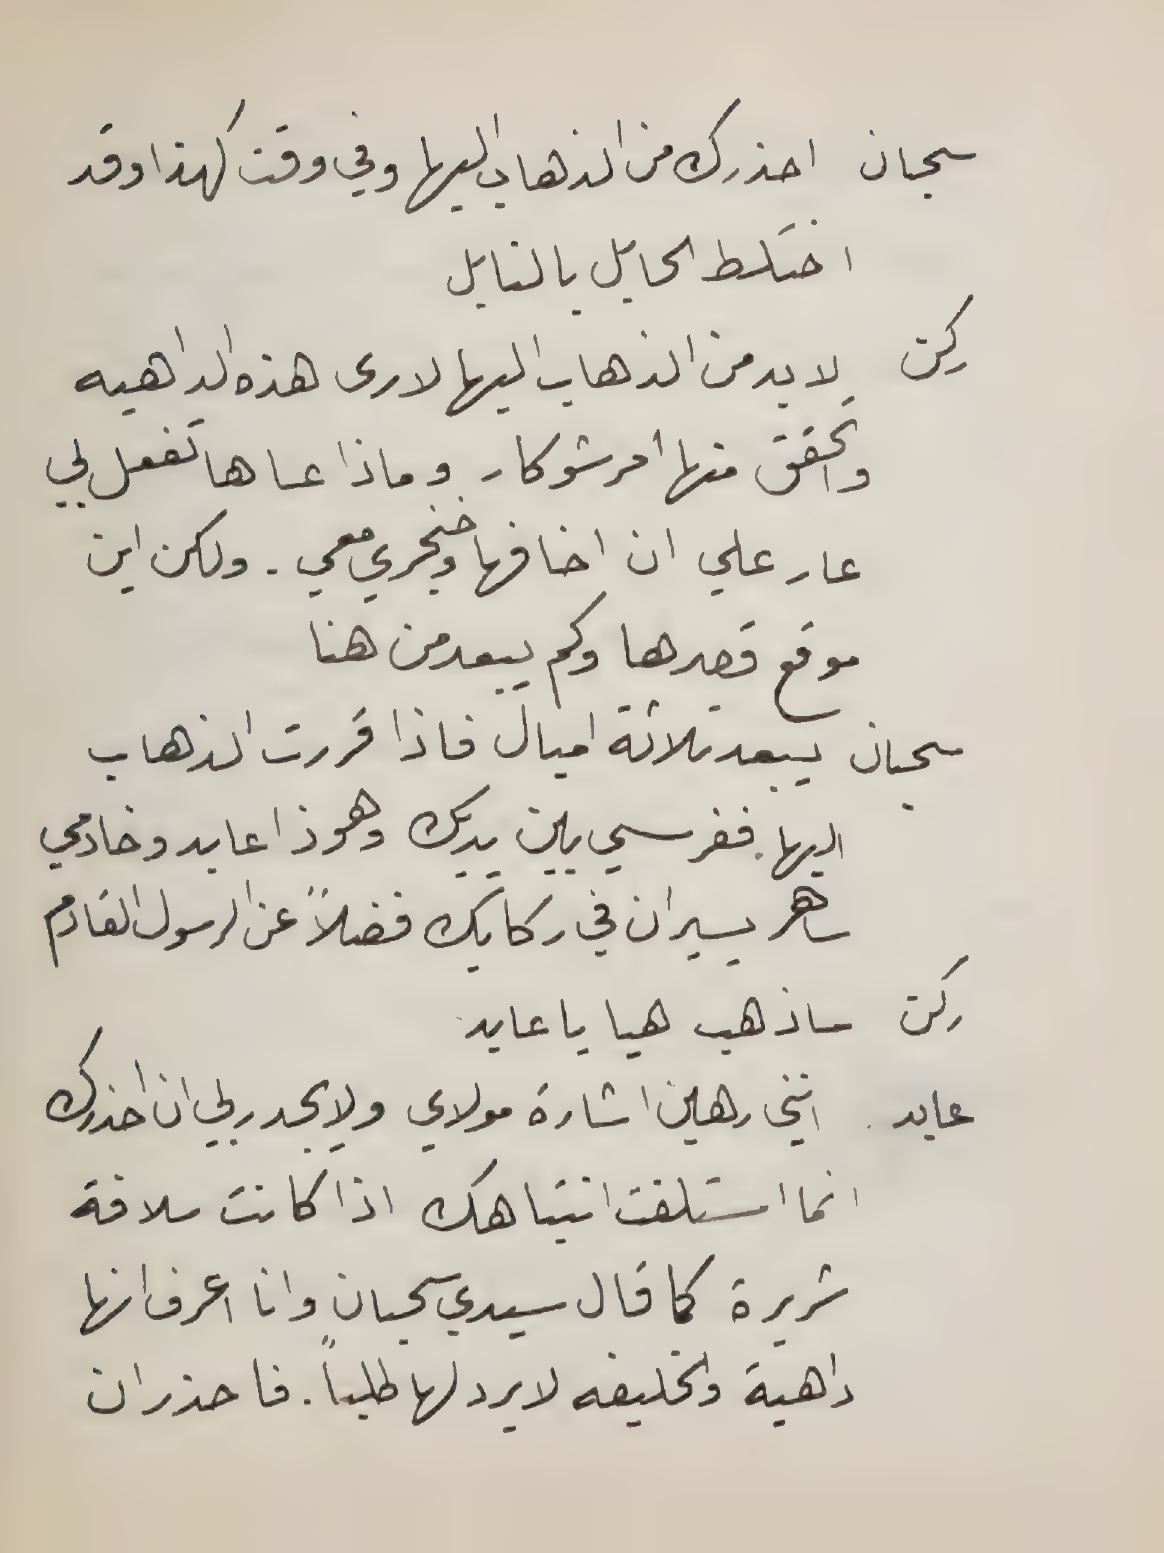 سحبان احذرك من الذهاب اليها وفي وقت كهذا وقد
اختلط الحابل بالنابل
ركن لا بد من الذهاب اليها لارى هذه الداهيه
واتحقق منها امر شوكار وماذا عساها تفعل بي
عار علي ان اخافها وخنجري معي . ولكن اين
موقع قصرها وكم يبعد من هنا
سحبان يبعد ثلاثة اميال فاذا قررت الذهاب
اليها . ففرسي بين يديك وهوذا عابد وخادمي
ساهر يسيران في ركابك فضلاً عن الرسول القادم
ركن ساذهب هيا يا عابد
عابد انني رهين اشارة مولاي ولا يجدر بي ان احذرك
انما استلفت انتباهك اذا كانت سلافة
شريرة كما قال سيدي سحبان وانا اعرف انها
داهية والخليفه لا يرد لها طلباً . فاحذر ان